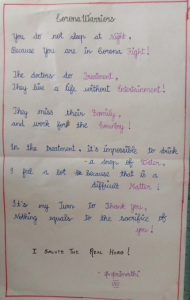 Corona Warriors
You do not sleep at Night,
Because You are in Corona Fight!
The doctors do Treatment,
They live a life without Entertainment!
They miss their Family,
and work for the Country!
In the treatment, it's impossible to drink
a drop of Water,
I feel a lot so Because that is a
difficult Matter!
It's my Turn to Thank You,
Nothing equals to the sacrifice of
you!
I SALUTE THE REAL HERO!